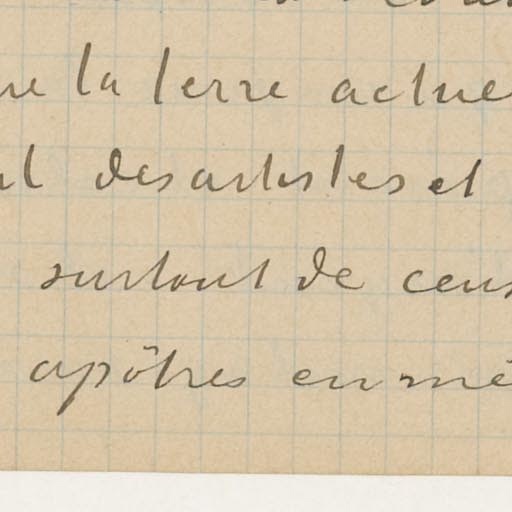 la terre actue
des artistes et
surtout de ceux
apôtres en mê